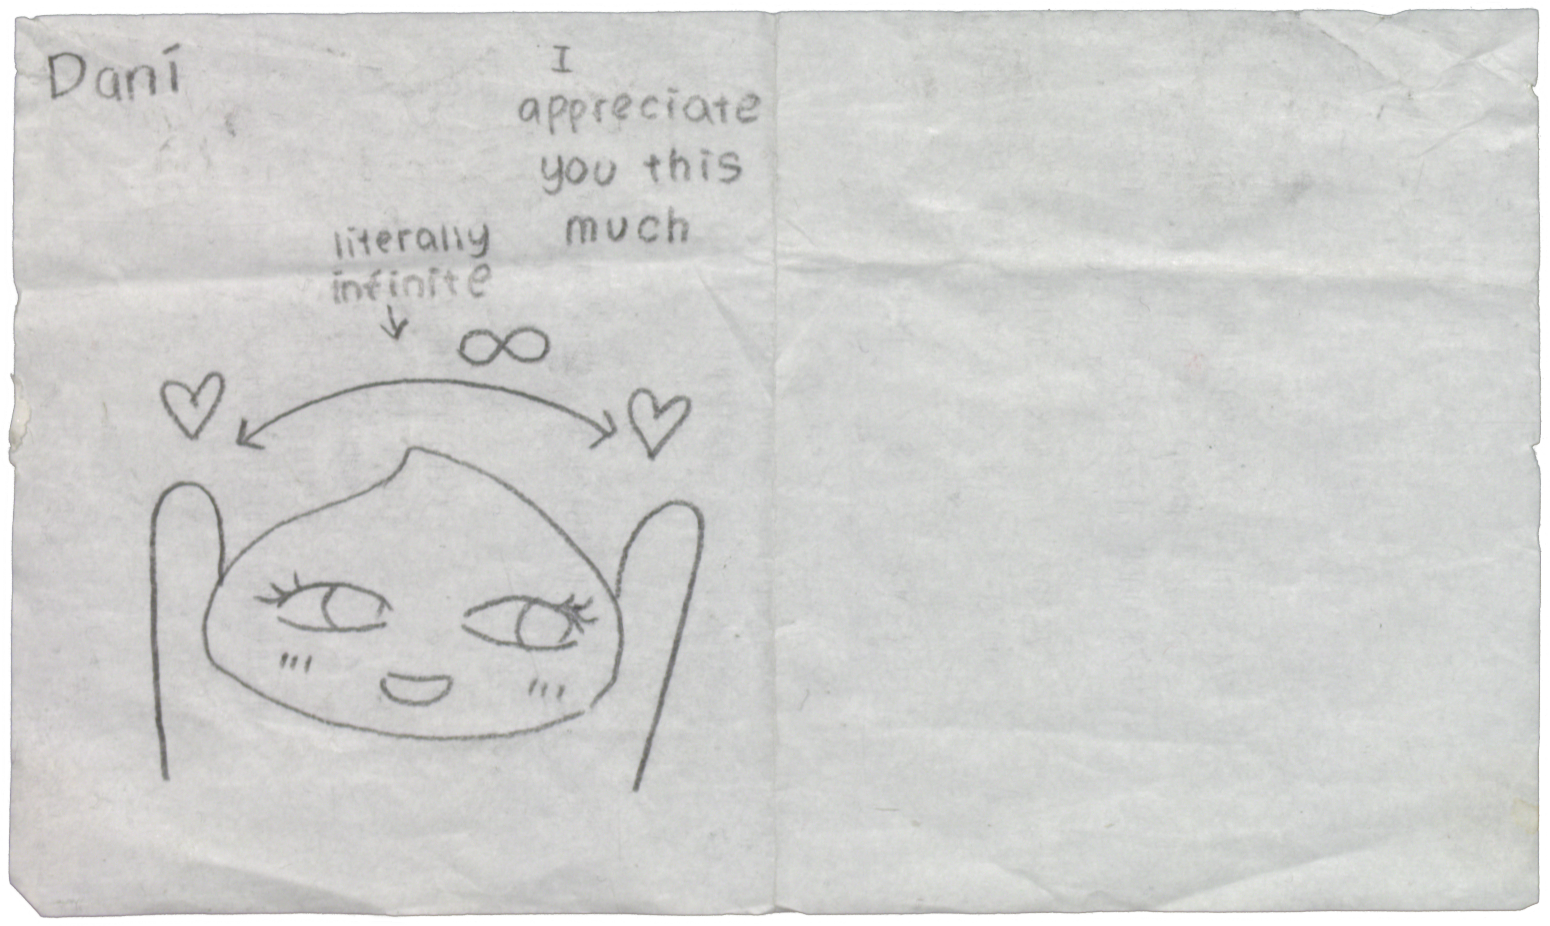 Dani
I
appreciate
you this
much
literally
infinite
∞